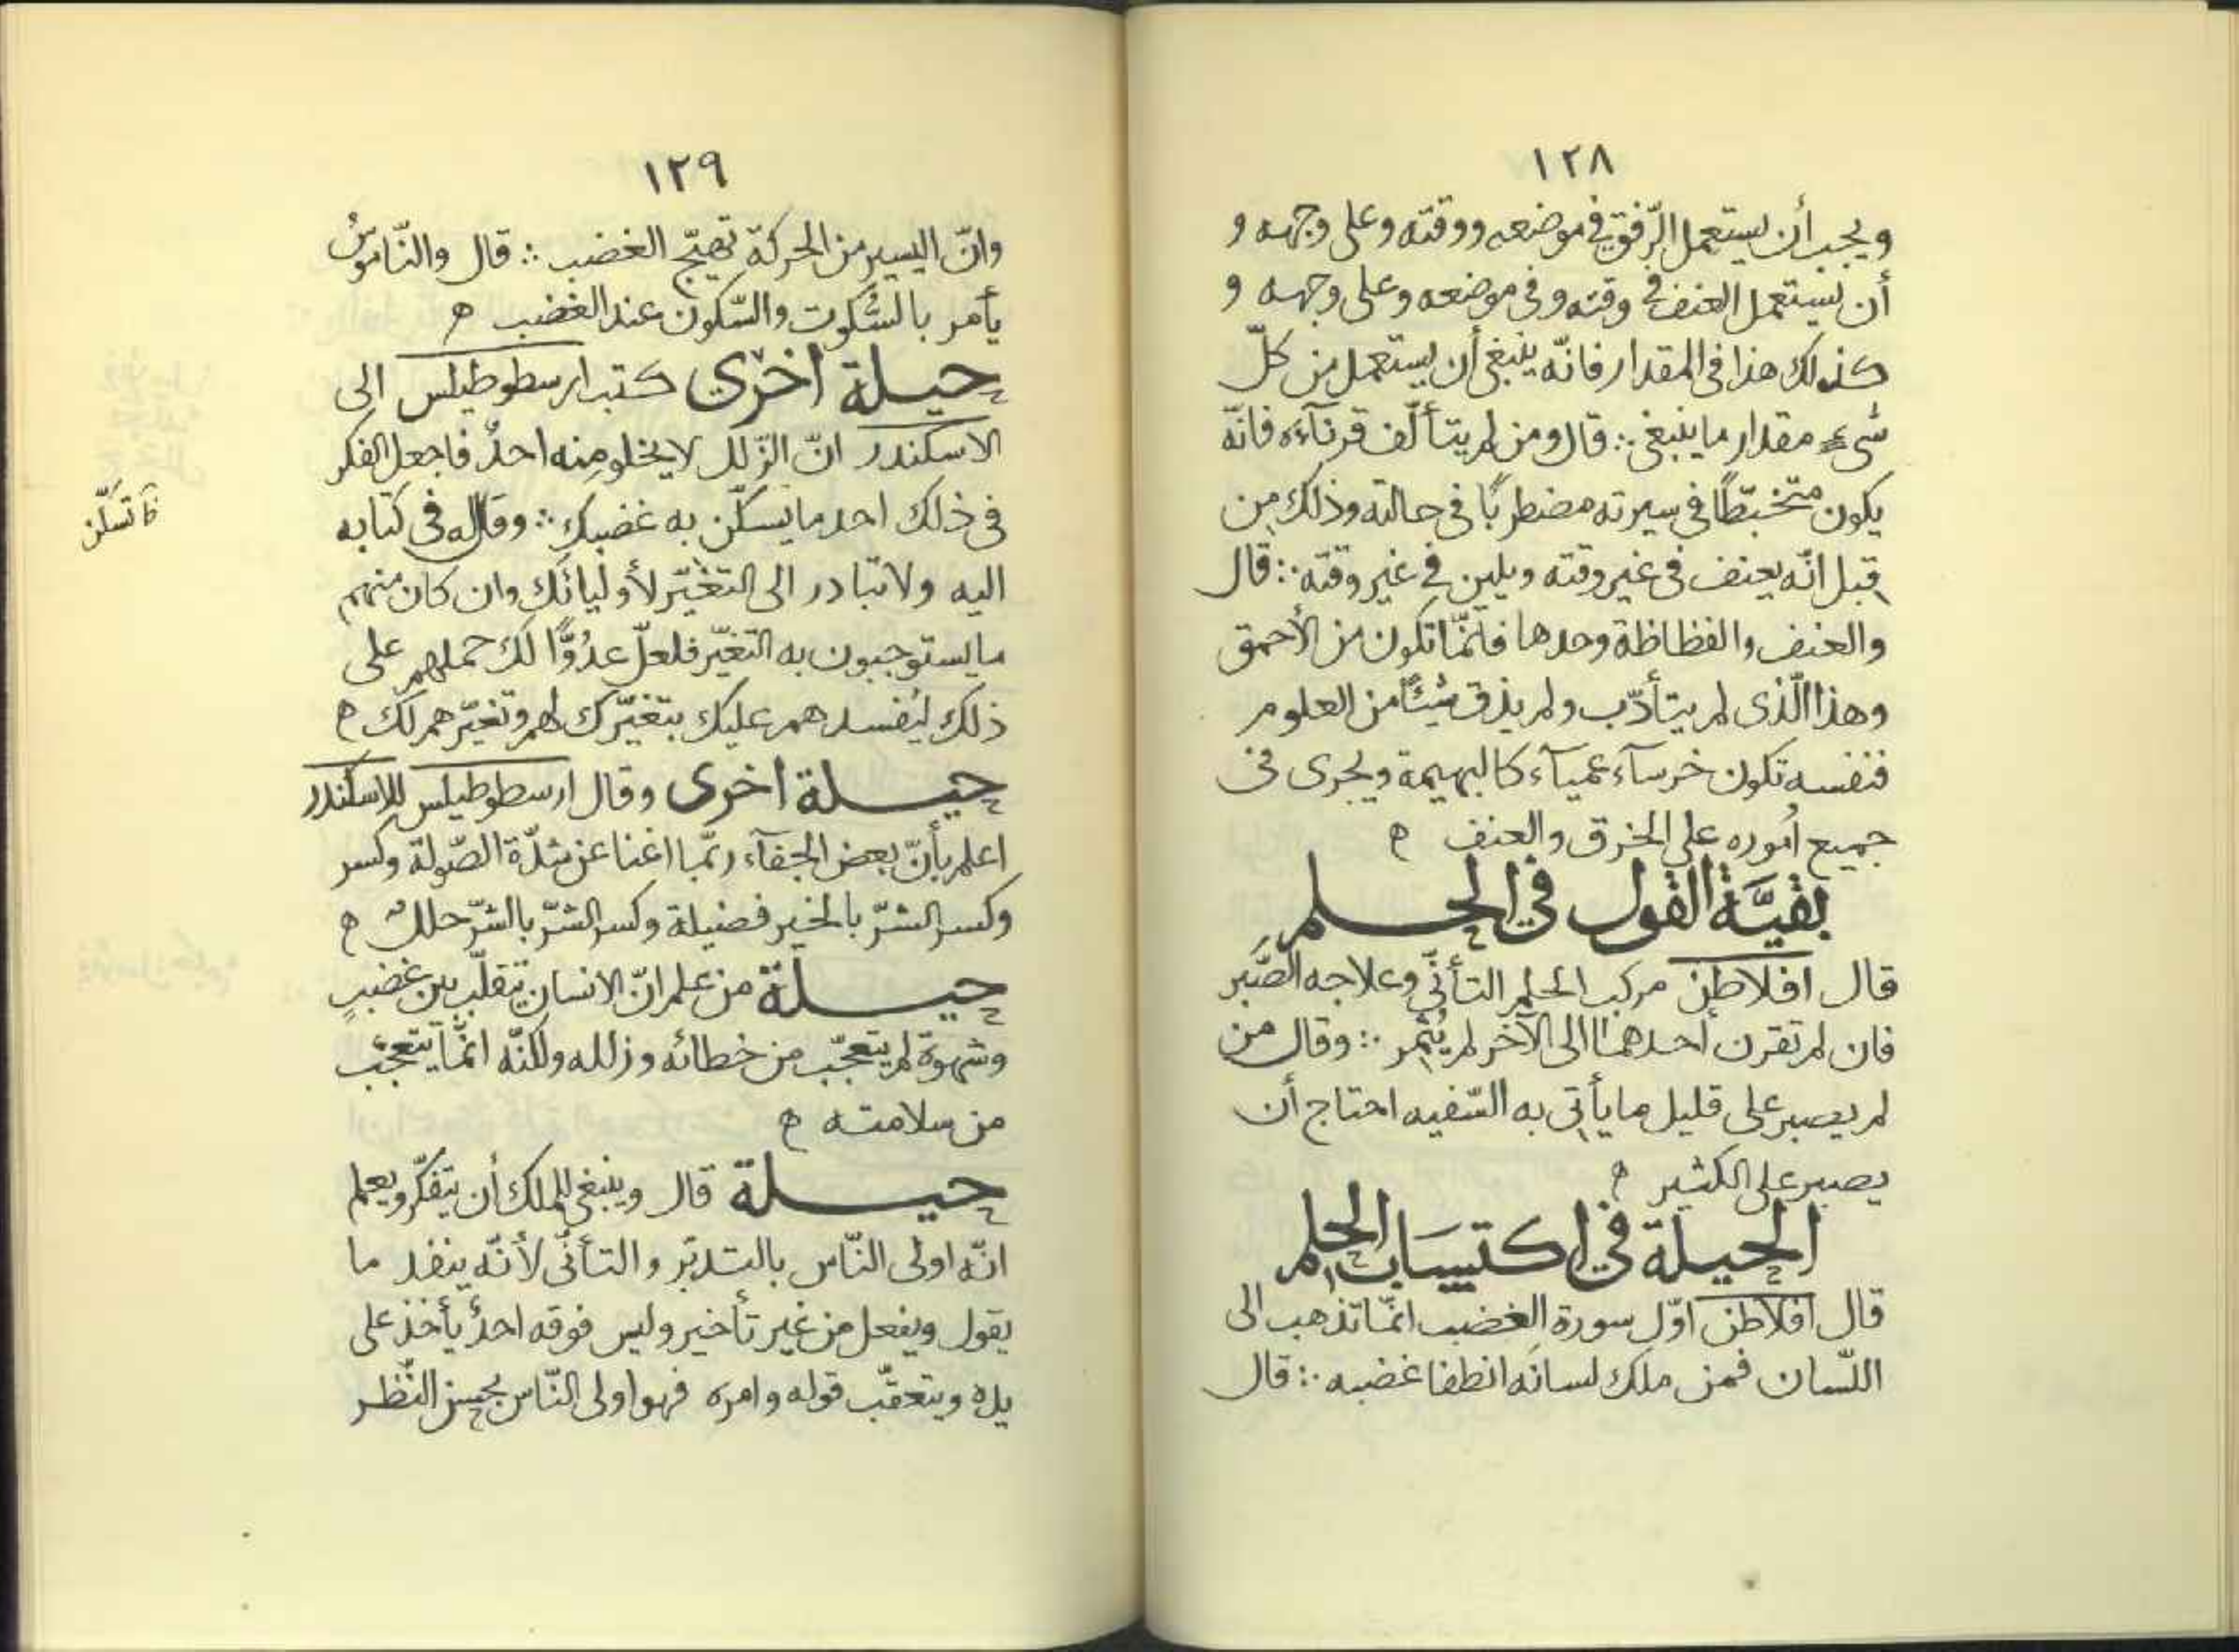 ١٢٨
ويجب أن يستعمل الرّفق في موضعه ووقته وعلى وجهه و
أن يستعمل العنف في وقته وفى موضعه وعلى وجهه و
كذلك هذا فى المقدار فانّه ينبغى أن يستعمل من كلّ
شىء مقدار ما ينبغى ∴ قال ومن لم يتألّف قرنآءه فانّه
يكون متخبّطًا في سيرته مضطربًا فى حالته وذلك من
قبل انّه يعنف فى غير وقته ويلين في غير وقته ∴ قال
والعنف والفظاظة وحدها فانّما تكون من الأحمق
وهذا الّذى لم يتأدّب ولم يذق شيئًا من العلوم
فنفسه تكون خرسآء عميآء كالبهيمة ويجرى فى
جميع أموره على الخرق والعنف ه
بقيّة القول في الحلم
قال افلاطن مركب الحلم التأنّي وعلاجه الصّبر
فان لم تقرن أحدهما الى الآخر لم يُثمر ∴ وقال من
لم يصبر على قليل ما يأتي به السّفيه احتاج أن
يصبر على الكثير ه
الحيلة في اكتساب الحلم
قال افلاطن اوّل سورة الغضب انّما تذهب الى
اللّسان فمن ملك لسانَه انطفا غضبه ∴ قال
١٢٩
وانّ اليسير من الحركة تهيّج الغضب ∴ قال والنّاموسُ
يأمر بالسّكوت والسّكون عند الغضب ه
حيلة اخرى كتب ارسطوطيلس الى
الاسكندر انّ الزّلل لا يخلو منه احدٌ فاجعل الفكر
فى ذلك احد ما يسكّن به غضبك ∴ وقال له فى كتابه
اليه ولا تبادر الى التغيّر لأوليائك وان كان منهم
ما يستوجبون به التغيّر فلعلّ عدُوًّا لك حملهم على
ذلك ليُفسدهم عليك بتغيّرك لهم وتغيّرهم لك ه
حيلة اخرى وقال ارسطوطيلس للاسكندر
اعلم بأنّ بعض الجفآء ربّما اغنا عن شدّة الصّولة وكسر
وكسر الشرّ بالخير فضيلة وكسر الشرّ بالشرّ حلك ه
حيلة من علم انّ الانسان يتقلّب بين غضبٍ
وشهوة لم يتعجّب من خطائه وزلله ولكنّه انّما يتعجّب
من سلامته ه
حيلة قال وينبغى للملك أن يتفكّر ويعلم
انّه اولى النّاس بالتدبّر والتأنّى لأنّه ينفذ ما
يقول ويفعل من غير تأخير وليس فوقه احدٌ يأخذ على
يده ويتعقّب قوله وامره فهو اولى النّاس بحسن النّظر